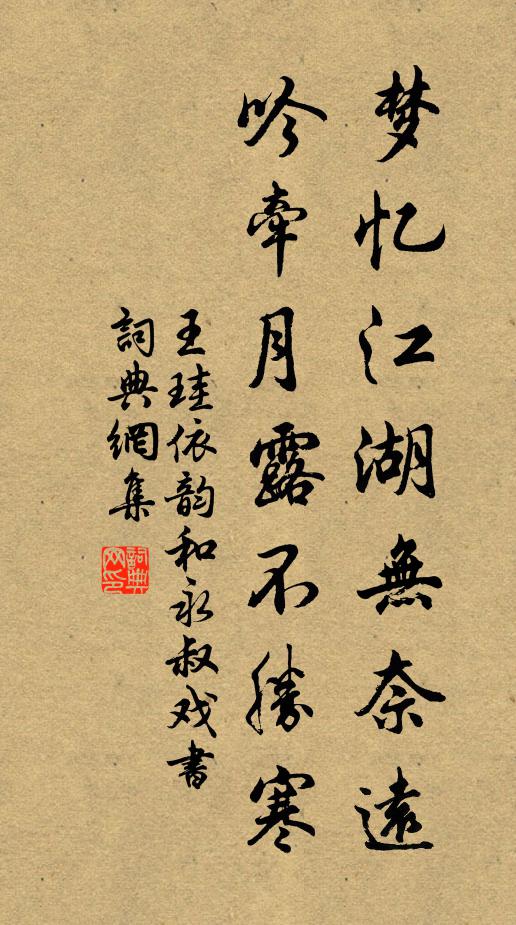 梦忆江湖無奈遠
吟牵月露不勝寒
王珪依韵和永叔戏書
詞典網集
詞典网印